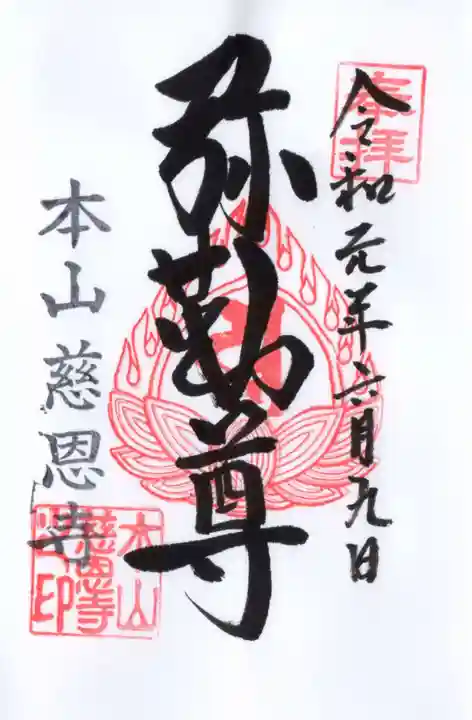 奉拝
令和元年六月九日
弥勒尊
本山慈恩寺
本山
慈恩寺